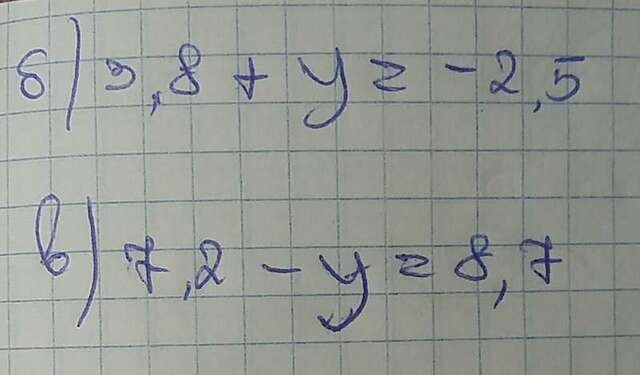 б) 5,8 + y = -2,5
в) 7,2 - y = 8,7